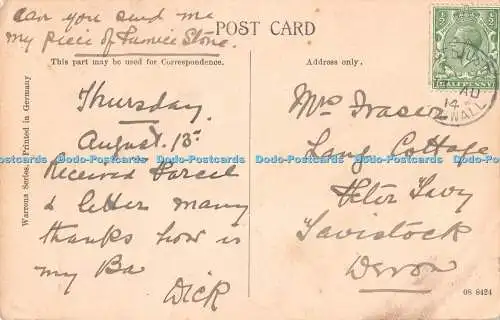 can you send me
my piece of Pumice Stone.
POST CARD
This part may be used for Correspondence.
Address only.
Thursday
August. 13th
Received Parcel
& letter many
thanks how is
my Ba
Dick
Mrs Fraser
Lang Cottage
Peter Tavy
Tavistock
Devon
Warrous Series. Printed in Germany
08 8424
HALFPENNY
AU
14
NWALL
Dodo-Postcards Dodo-Postcards Dodo-Postcards Dodo-Postcards Dodo-Postcards Dodo-Postcards